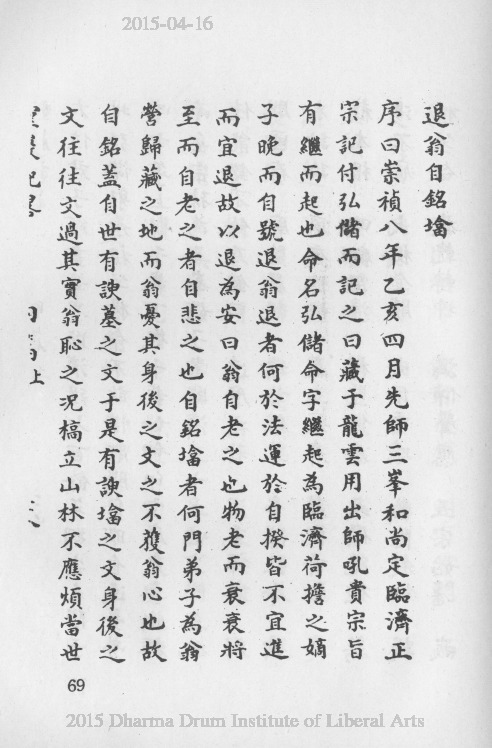 2015-04-16
退翁自銘塔
序曰崇禎八年乙亥四月先師三峯和尚定臨濟正
宗記付弘儲而記之曰藏于龍雲用出師吼貴宗旨
有繼而起也命名弘儲命字繼起為臨濟荷擔之嫡
子晚而自號退翁退者何於法運於自揆皆不宜進
而宜退故以退為安曰翁自老之也物老而衰衰將
至而自老之者自悲之也自銘塔者何門弟子為翁
營歸藏之地而翁憂其身後之文之不獲翁心也故
自銘蓋自世有諛墓之文于是有諛塔之文身後之
文往往文過其實翁恥之況槁立山林不應煩當世
69
2015 Dharma Drum Institute of Liberal Arts